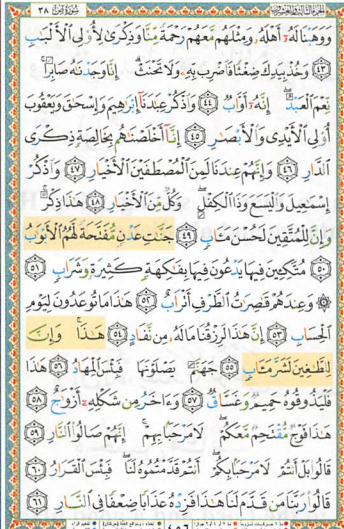 سُورَةُ صٓ ٣٨
وَوَهَبْنَا لَهُۥٓ أَهْلَهُۥ وَمِثْلَهُم مَّعَهُمْ رَحْمَةً مِّنَّا وَذِكْرَىٰ لِأُو۟لِى ٱلْأَلْبَٰبِ
٤٣ وَخُذْ بِيَدِكَ ضِغْثًا فَٱضْرِب بِّهِۦ وَلَا تَحْنَثْ إِنَّا وَجَدْنَٰهُ صَابِرًا
نِّعْمَ ٱلْعَبْدُ إِنَّهُۥٓ أَوَّابٌ ٤٤ وَٱذْكُرْ عِبَٰدَنَآ إِبْرَٰهِيمَ وَإِسْحَٰقَ وَيَعْقُوبَ
أُو۟لِى ٱلْأَيْدِى وَٱلْأَبْصَٰرِ ٤٥ إِنَّآ أَخْلَصْنَٰهُم بِخَالِصَةٍ ذِكْرَى
ٱلدَّارِ ٤٦ وَإِنَّهُمْ عِندَنَا لَمِنَ ٱلْمُصْطَفَيْنَ ٱلْأَخْيَارِ ٤٧ وَٱذْكُرْ
إِسْمَٰعِيلَ وَٱلْيَسَعَ وَذَا ٱلْكِفْلِ وَكُلٌّ مِّنَ ٱلْأَخْيَارِ ٤٨ هَٰذَا ذِكْرٌ
وَإِنَّ لِلْمُتَّقِينَ لَحُسْنَ مَـَٔابٍ ٤٩ جَنَّٰتِ عَدْنٍ مُّفَتَّحَةً لَّهُمُ ٱلْأَبْوَٰبُ
٥٠ مُتَّكِـِٔينَ فِيهَا يَدْعُونَ فِيهَا بِفَٰكِهَةٍ كَثِيرَةٍ وَشَرَابٍ ٥١
۞ وَعِندَهُمْ قَٰصِرَٰتُ ٱلطَّرْفِ أَتْرَابٌ ٥٢ هَٰذَا مَا تُوعَدُونَ لِيَوْمِ
ٱلْحِسَابِ ٥٣ إِنَّ هَٰذَا لَرِزْقُنَا مَا لَهُۥ مِن نَّفَادٍ ٥٤ هَٰذَا وَإِنَّ
لِلطَّٰغِينَ لَشَرَّ مَـَٔابٍ ٥٥ جَهَنَّمَ يَصْلَوْنَهَا فَبِئْسَ ٱلْمِهَادُ ٥٦ هَٰذَا
فَلْيَذُوقُوهُ حَمِيمٌ وَغَسَّاقٌ ٥٧ وَءَاخَرُ مِن شَكْلِهِۦٓ أَزْوَٰجٌ ٥٨
هَٰذَا فَوْجٌ مُّقْتَحِمٌ مَّعَكُمْ لَا مَرْحَبًۢا بِهِمْ إِنَّهُمْ صَالُوا۟ ٱلنَّارِ ٥٩
قَالُوا۟ بَلْ أَنتُمْ لَا مَرْحَبًۢا بِكُمْ أَنتُمْ قَدَّمْتُمُوهُ لَنَا فَبِئْسَ ٱلْقَرَارُ ٦٠
قَالُوا۟ رَبَّنَا مَن قَدَّمَ لَنَا هَٰذَا فَزِدْهُ عَذَابًا ضِعْفًا فِى ٱلنَّارِ ٦١
٤٥٦